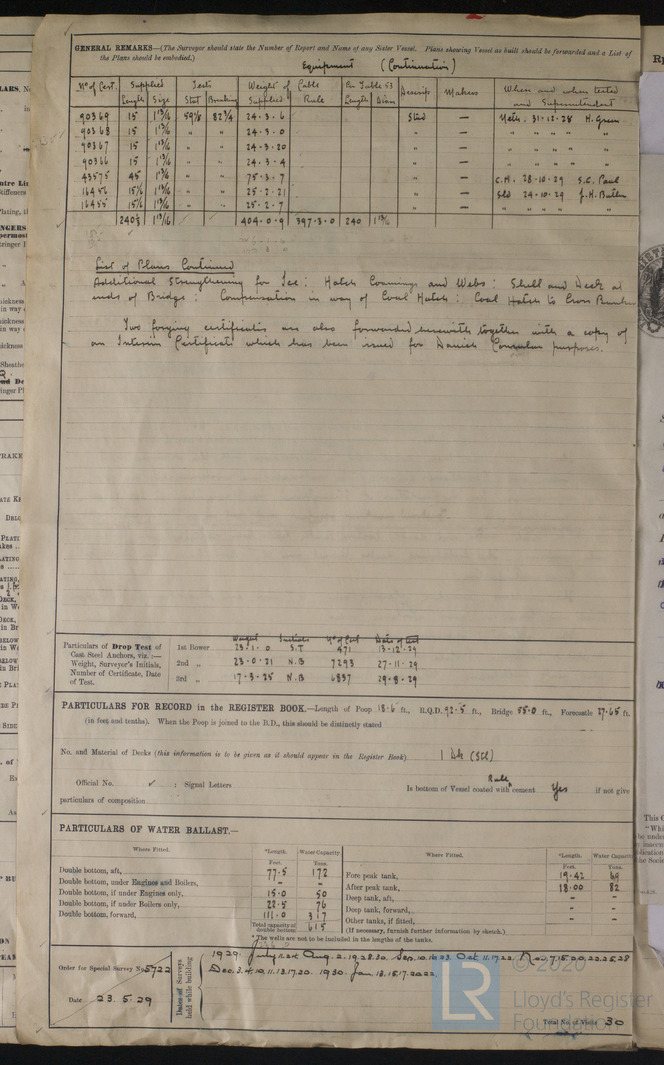 GENERAL REMARKS—(The Surveyor should state the Number of Report and Name of any Sister Vessel. Plans shewing Vessel as built should be forwarded and a List of
the Plans should be embodied.)
Equipment (Continuation)
No of Cert. Supplied Tests Weight of Cable Per Table 53 Descrip Makers Where and when tested
Length Size Stat Breaking Supplied Rule Length Diam and Superintendent
90369 15 1 13/16 59 1/8 82 3/4 24-3-6 Stud — Neth. 31-12-28 H. Green
90368 15 1 13/16 " " 24-3-0 " — " " " " "
90367 15 1 13/16 " " 24-3-20 " — " " " " "
90366 15 1 13/16 " " 24-3-4 " — " " " " "
43575 45 1 13/16 " " 75-3-7 " — C.H. 28-10-29 S.C. Paul
16456 15 1/6 1 13/16 " " 25-2-21 " — Sld 24-10-29 J.H. Butler
16455 15 1/6 1 13/16 " " 25-2-7 " — " " " " "
240 1/3 1 13/16 404-0-9 397-3-0 240 1 13/16
List of Plans Continued
Additional Strengthening for Ice: Hatch Coamings and Webs: Shell and Deck at
ends of Bridge: Compensation in way of Coal Hatch: Coal Hatch to Cross Bunker
Two forging certificates are also forwarded herewith together with a copy of
an Interim Certificate which has been issued for Danish Consular purposes.
Particulars of Drop Test of
Cast Steel Anchors, viz.:—
Weight, Surveyor's Initials,
Number of Certificate, Date
of Test.
Weight Initials No of Cert Date of test
1st Bower 23-1-0 S.T 471 13-12-29
2nd „ 23-0-21 N.B 7293 27-11-29
3rd „ 17-3-25 N.B 6837 29-8-29
PARTICULARS FOR RECORD in the REGISTER BOOK.—Length of Poop 18.6 ft., R.Q.D. 92.5 ft., Bridge 55.0 ft., Forecastle 27.65 ft.
(in feet and tenths). When the Poop is joined to the B.D., this should be distinctly stated
No. and Material of Decks (this information is to be given as it should appear in the Register Book) 1 Dk (Stl)
Official No. ✓ ; Signal Letters Is bottom of Vessel coated with cement Yes if not give
particulars of composition
PARTICULARS OF WATER BALLAST.—
Where Fitted. *Length. Water Capacity. Where Fitted. *Length. Water Capacity
Feet. Tons. Feet. Tons.
Double bottom, aft, 77.5 172 Fore peak tank, 19.42 69
Double bottom, under Engines and Boilers, - - After peak tank, 18.00 82
Double bottom, if under Engines only, 15.0 50 Deep tank, aft, - -
Double bottom, if under Boilers only, 22.5 76 Deep tank, forward, - -
Double bottom, forward, 111.0 317 Other tanks, if fitted, - -
Total capacity of double bottom 615 (If necessary, furnish further information by sketch.)
* The wells are not to be included in the lengths of the tanks.
Order for Special Survey No. 5722
Date 23.5.29
Dates of Surveys held while building
1929. July 22.25 Aug. 2.19.28.30. Sep. 10.16.23. Oct. 11.17.22. Nov. 7.15.20.22.25.28
Dec. 3.4.10.11.13.17.20. 1930. Jan. 13.15.17.20.22
Total No. of Visits 30
LR
© 2020
Lloyd's Register
Foundation